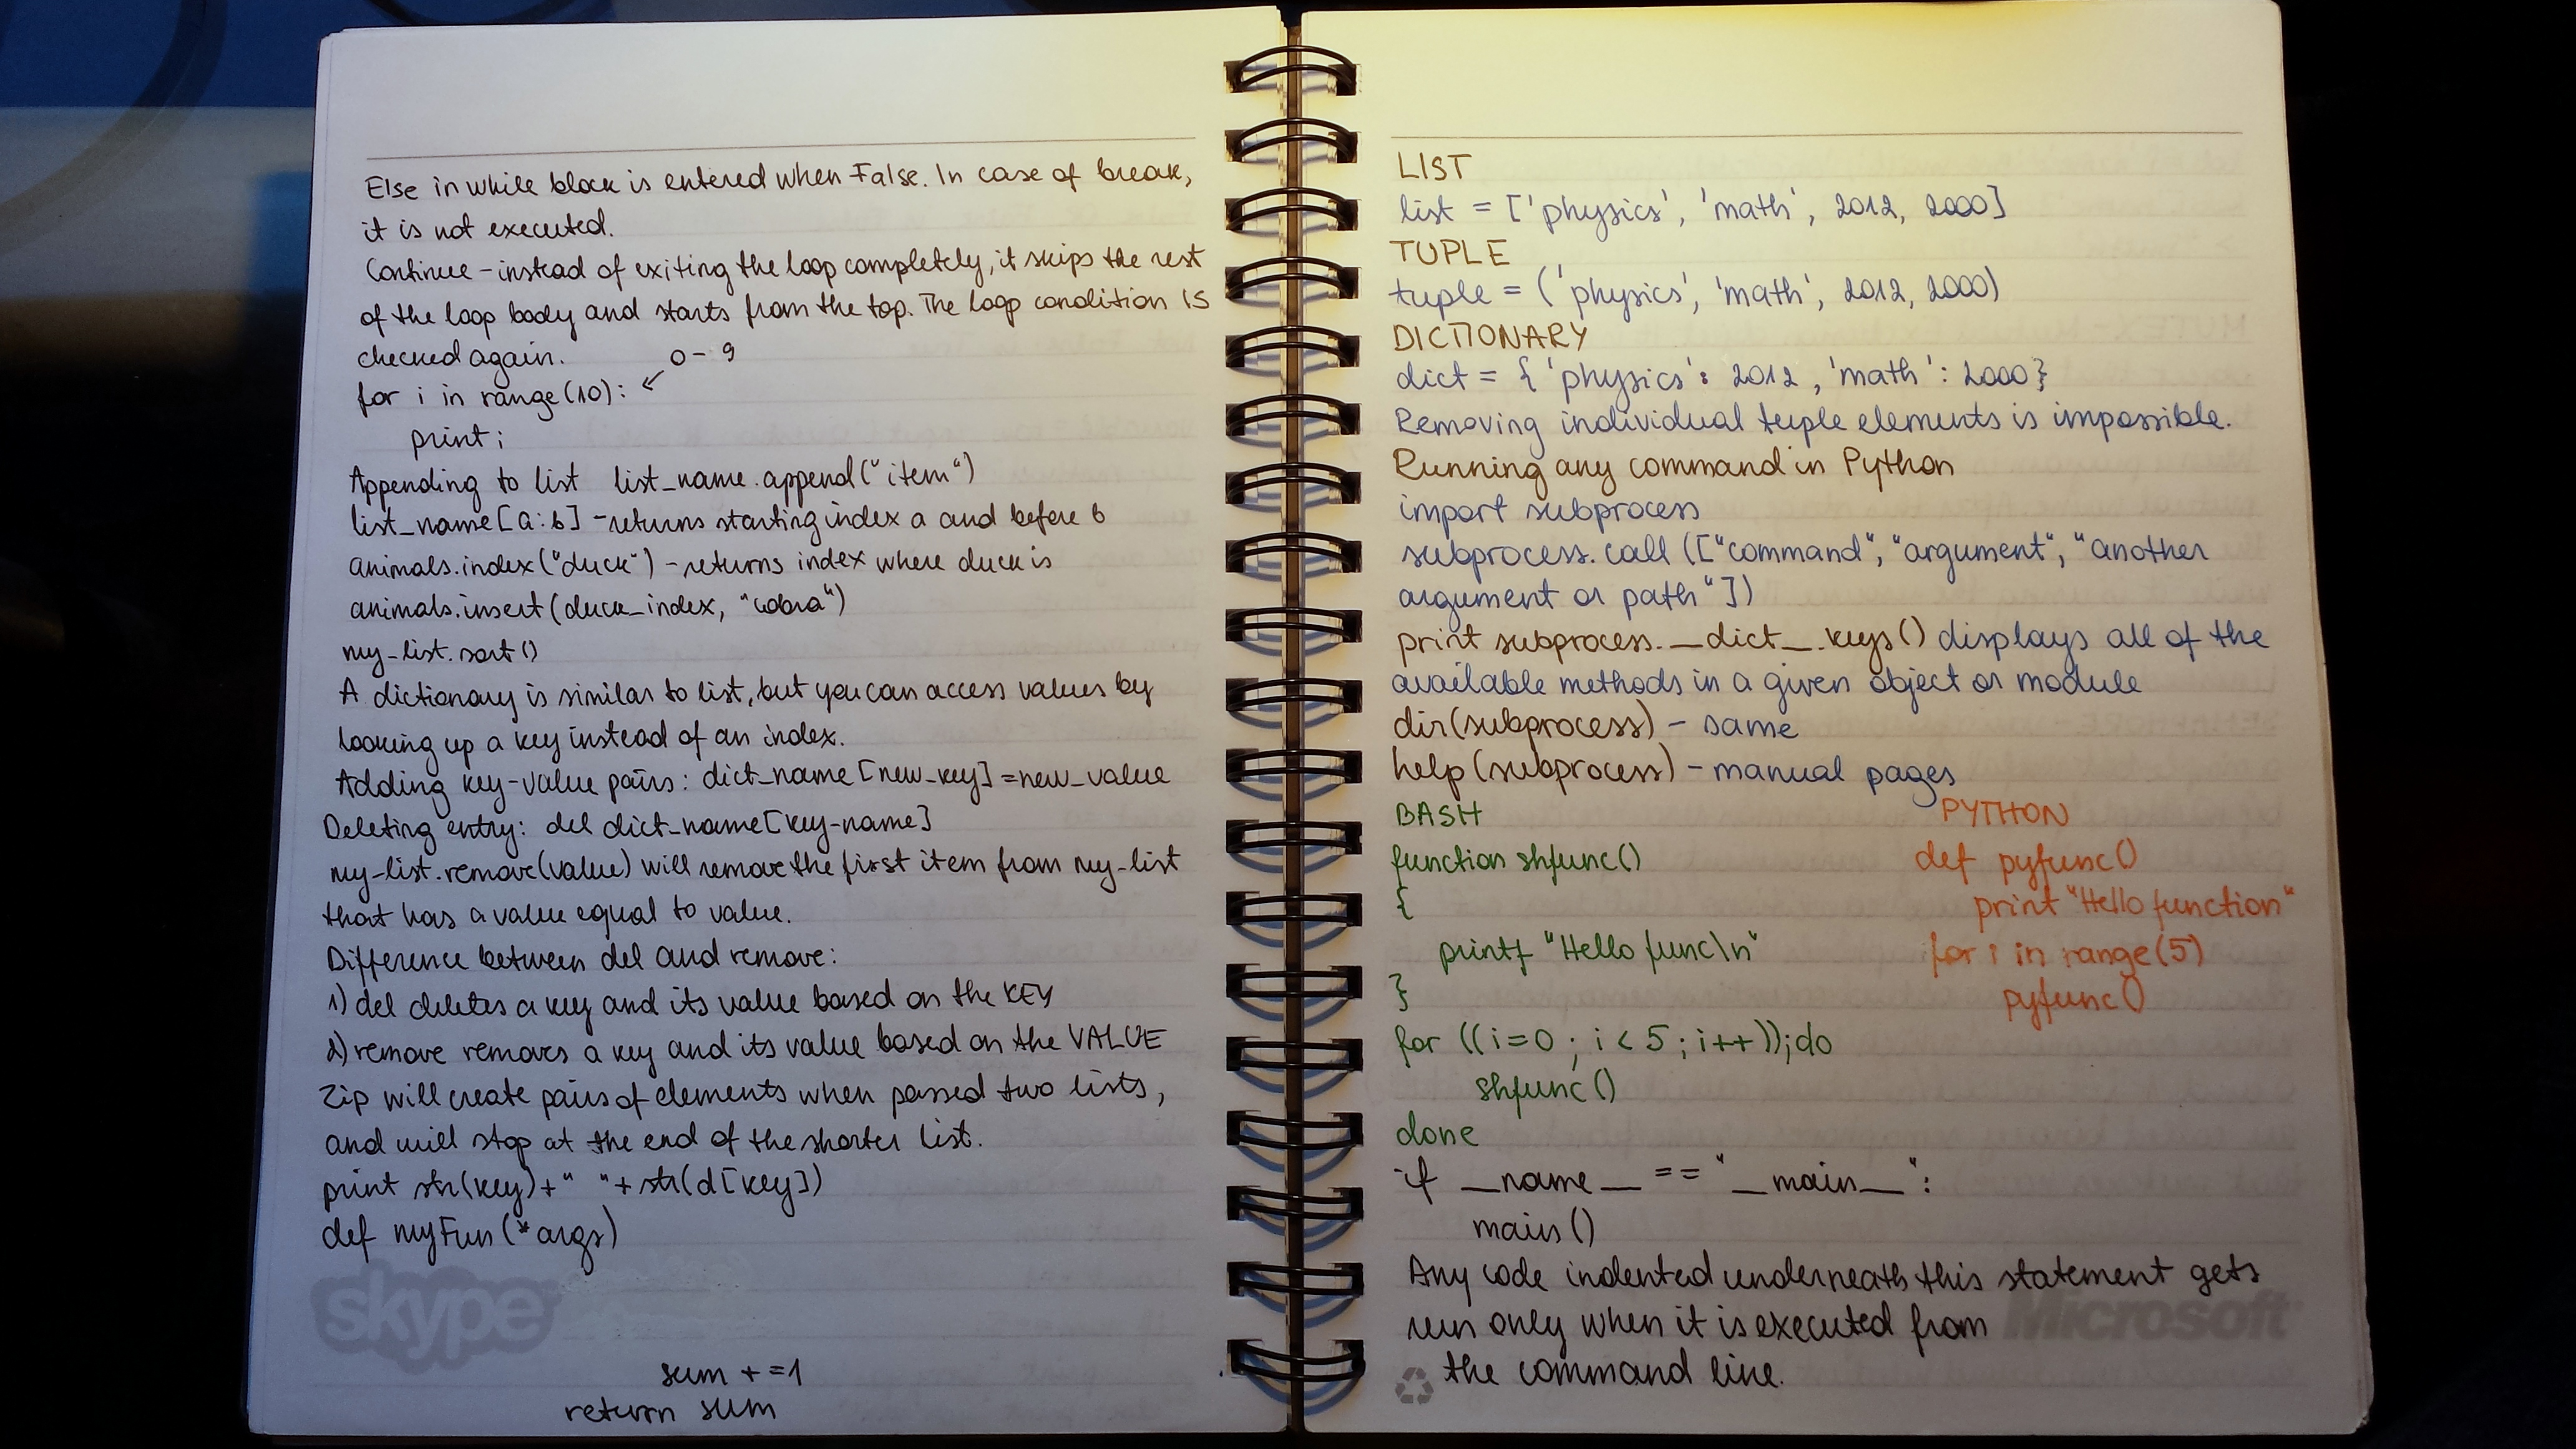 Else in while block is entered when False. In case of break,
it is not executed.
Continue - instead of exiting the loop completely, it skips the rest
of the loop body and starts from the top. The loop condition is
checked again.
0 - 9
for i in range(10):
print i
Appending to list list_name.append("item")
list_name[a:b] - returns starting index a and before b
animals.index("duck") - returns index where duck is
animals.insert(duck_index, "cobra")
my_list.sort()
A dictionary is similar to list, but you can access values by
looking up a key instead of an index.
Adding key-value pairs: dict_name[new_key] = new_value
Deleting entry: del dict_name[key_name]
my_list.remove(value) will remove the first item from my_list
that has a value equal to value.
Difference between del and remove:
1) del deletes a key and its value based on the KEY
2) remove removes a key and its value based on the VALUE
Zip will create pairs of elements when passed two lists,
and will stop at the end of the shorter list.
print str(key)+" "+str(d[key])
def myFun(*args)
skype
sum += 1
return sum
LIST
list = ['physics', 'math', 2012, 2000]
TUPLE
tuple = ('physics', 'math', 2012, 2000)
DICTIONARY
dict = {'physics': 2012, 'math': 2000}
Removing individual tuple elements is impossible.
Running any command in Python
import subprocess
subprocess.call(["command", "argument", "another
argument or path"])
print subprocess.__dict__.keys() displays all of the
available methods in a given object or module
dir(subprocess) - same
help(subprocess) - manual pages
BASH
function shfunc()
{
printf "Hello func\n"
}
for ((i=0; i<5; i++));do
shfunc()
done
PYTHON
def pyfunc()
print "Hello function"
for i in range(5)
pyfunc()
if __name__ == "__main__":
main()
Any code indented underneath this statement gets
run only when it is executed from
the command line.
Microsoft